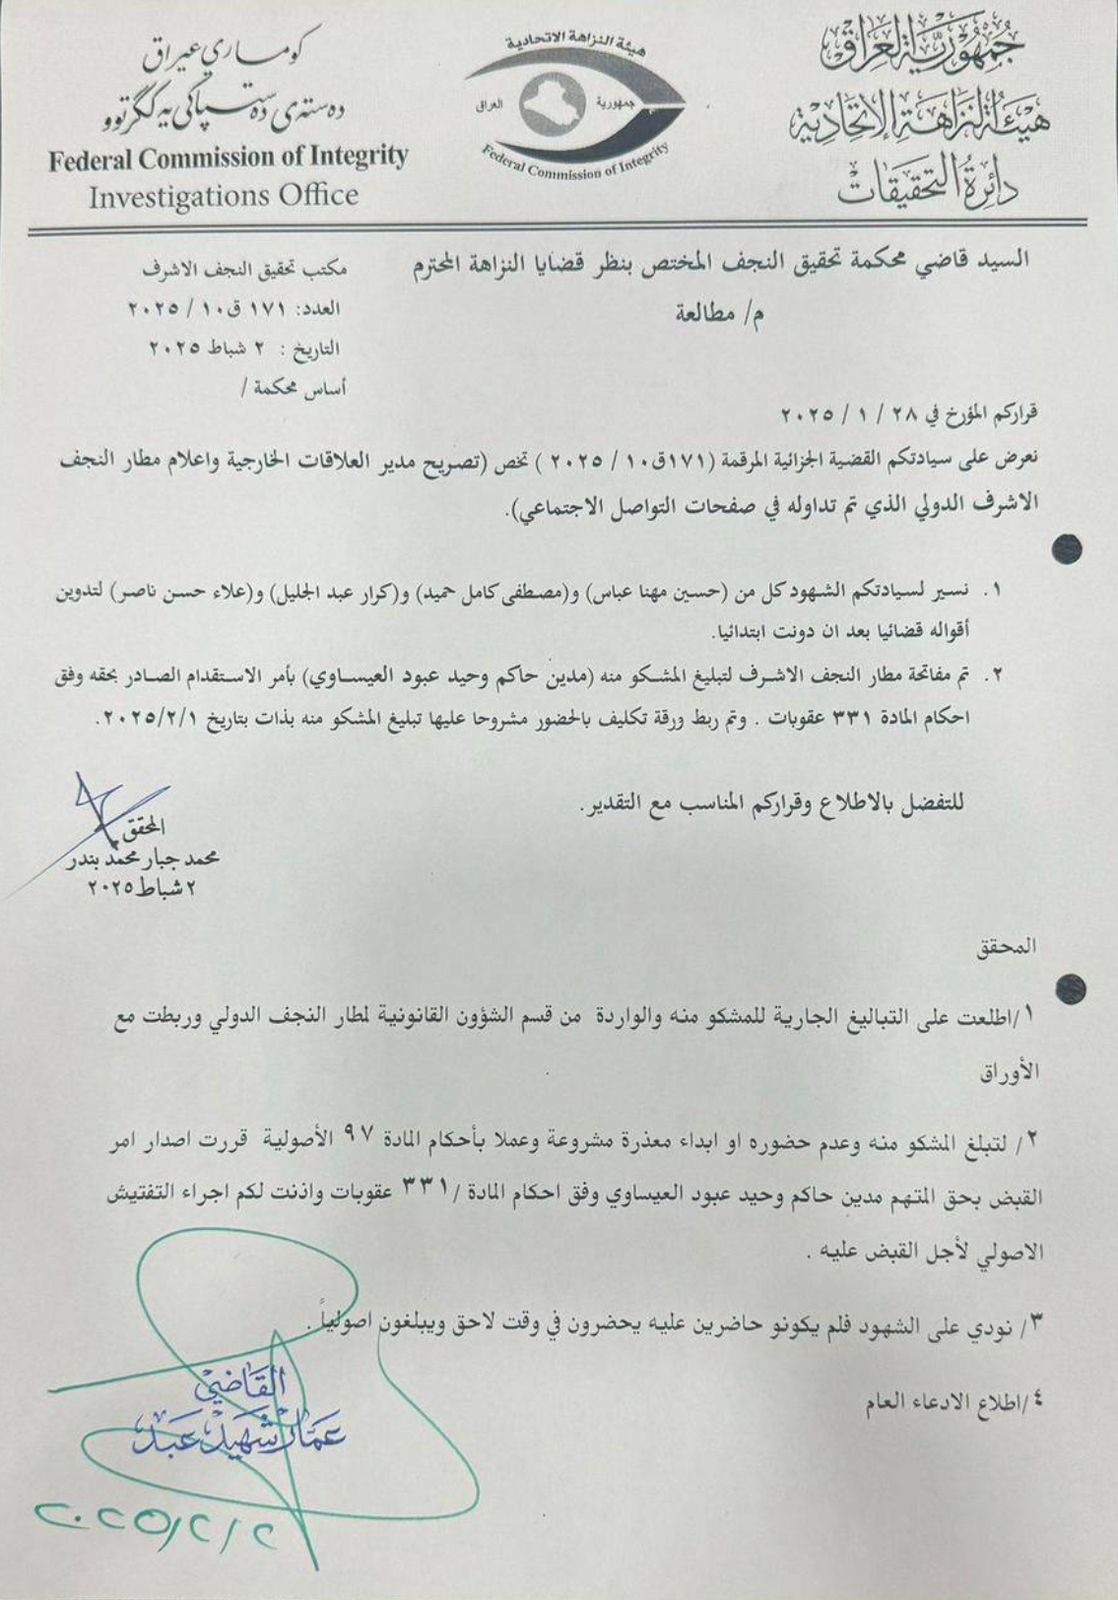 جمهورية العراق
هيئة النزاهة الاتحادية
دائرة التحقيقات
هيئة النزاهة الاتحادية
جمهورية العراق
Federal Commission of Integrity
كوماری عيراق
دەستەی دەستپاکی یەکگرتوو
Federal Commission of Integrity
Investigations Office
السيد قاضي محكمة تحقيق النجف المختص بنظر قضايا النزاهة المحترم
م/ مطالعة
مكتب تحقيق النجف الاشرف
العدد: ١٧١ ق١٠ / ٢٠٢٥
التاريخ : ٢ شباط ٢٠٢٥
أساس محكمة /
قراركم المؤرخ في ٢٨ / ١ / ٢٠٢٥
نعرض على سيادتكم القضية الجزائية المرقمة (١٧١ق١٠ / ٢٠٢٥ ) تخص (تصريح مدير العلاقات الخارجية واعلام مطار النجف
الاشرف الدولي الذي تم تداوله في صفحات التواصل الاجتماعي).
١. نسير لسيادتكم الشهود كل من (حسين مهنا عباس) و(مصطفى كامل حميد) و(كرار عبد الجليل) و(علاء حسن ناصر) لتدوين
أقواله قضائيا بعد ان دونت ابتدائيا.
٢. تم مفاتحة مطار النجف الاشرف لتبليغ المشكو منه (مدين حاكم وحيد عبود العيساوي) بأمر الاستقدام الصادر بحقه وفق
احكام المادة ٣٣١ عقوبات . وتم ربط ورقة تكليف بالحضور مشروحا عليها تبليغ المشكو منه بذات بتاريخ ٢٠٢٥/٢/١.
للتفضل بالاطلاع وقراركم المناسب مع التقدير.
المحقق
محمد جبار محمد بندر
٢ شباط ٢٠٢٥
المحقق
١/اطلعت على التباليغ الجارية للمشكو منه والواردة من قسم الشؤون القانونية لمطار النجف الدولي وربطت مع
الأوراق
٢/ لتبلغ المشكو منه وعدم حضوره او ابداء معذرة مشروعة وعملا بأحكام المادة ٩٧ الأصولية قررت اصدار امر
القبض بحق المتهم مدين حاكم وحيد عبود العيساوي وفق احكام المادة /٣٣١ عقوبات واذنت لكم اجراء التفتيش
الاصولي لأجل القبض عليه .
٣/ نودي على الشهود فلم يكونو حاضرين عليه يحضرون في وقت لاحق ويبلغون اصولياً .
٤/اطلاع الادعاء العام
القاضي
عمار شهيد عبد
٢٠٢٥/٢/٢